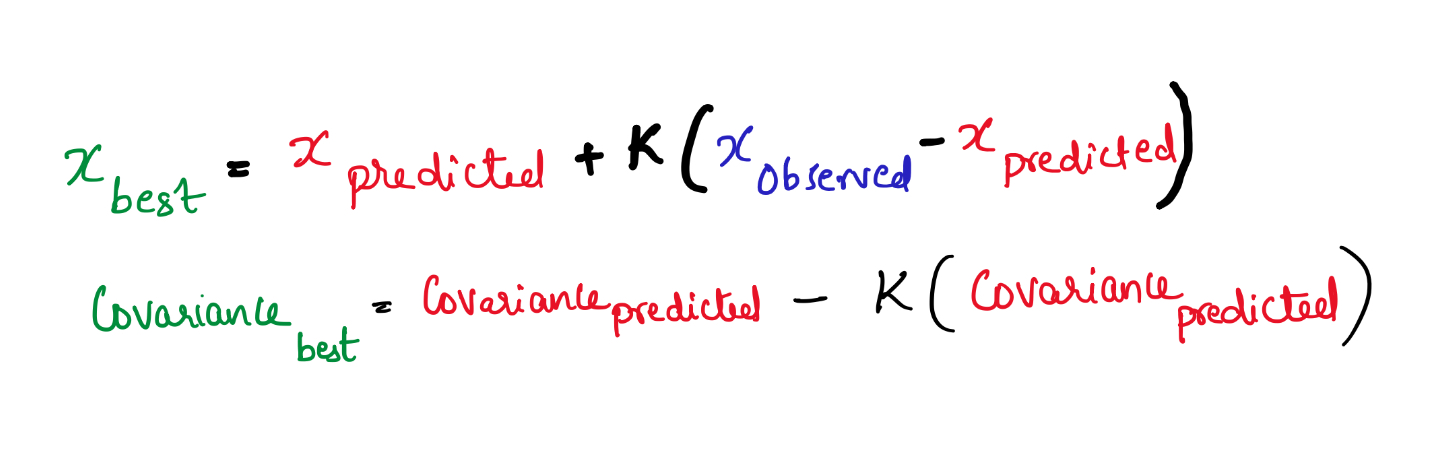 x best = x predicted + K ( x observed - x predicted )
Covariance best = Covariance predicted - K ( Covariance predicted )